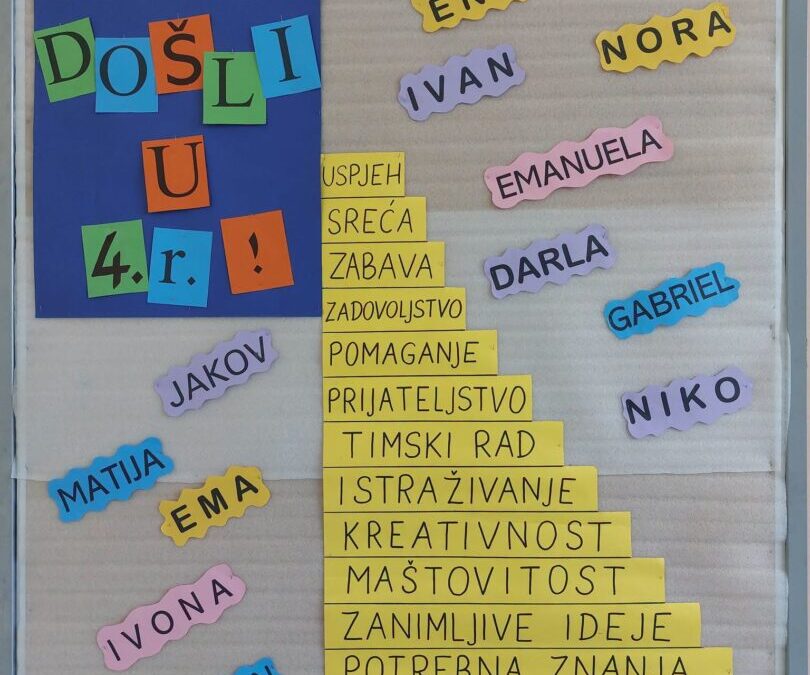 DOŠLI
U
4. r. !
NORA
IVAN
EMANUELA
DARLA
GABRIEL
NIKO
JAKOV
MATIJA
EMA
IVONA
USPJEH
SREĆA
ZABAVA
ZADOVOLJSTVO
POMAGANJE
PRIJATELJSTVO
TIMSKI RAD
ISTRAŽIVANJE
KREATIVNOST
MAŠTOVITOST
ZANIMLJIVE IDEJE
POTREBNA ZNANJA